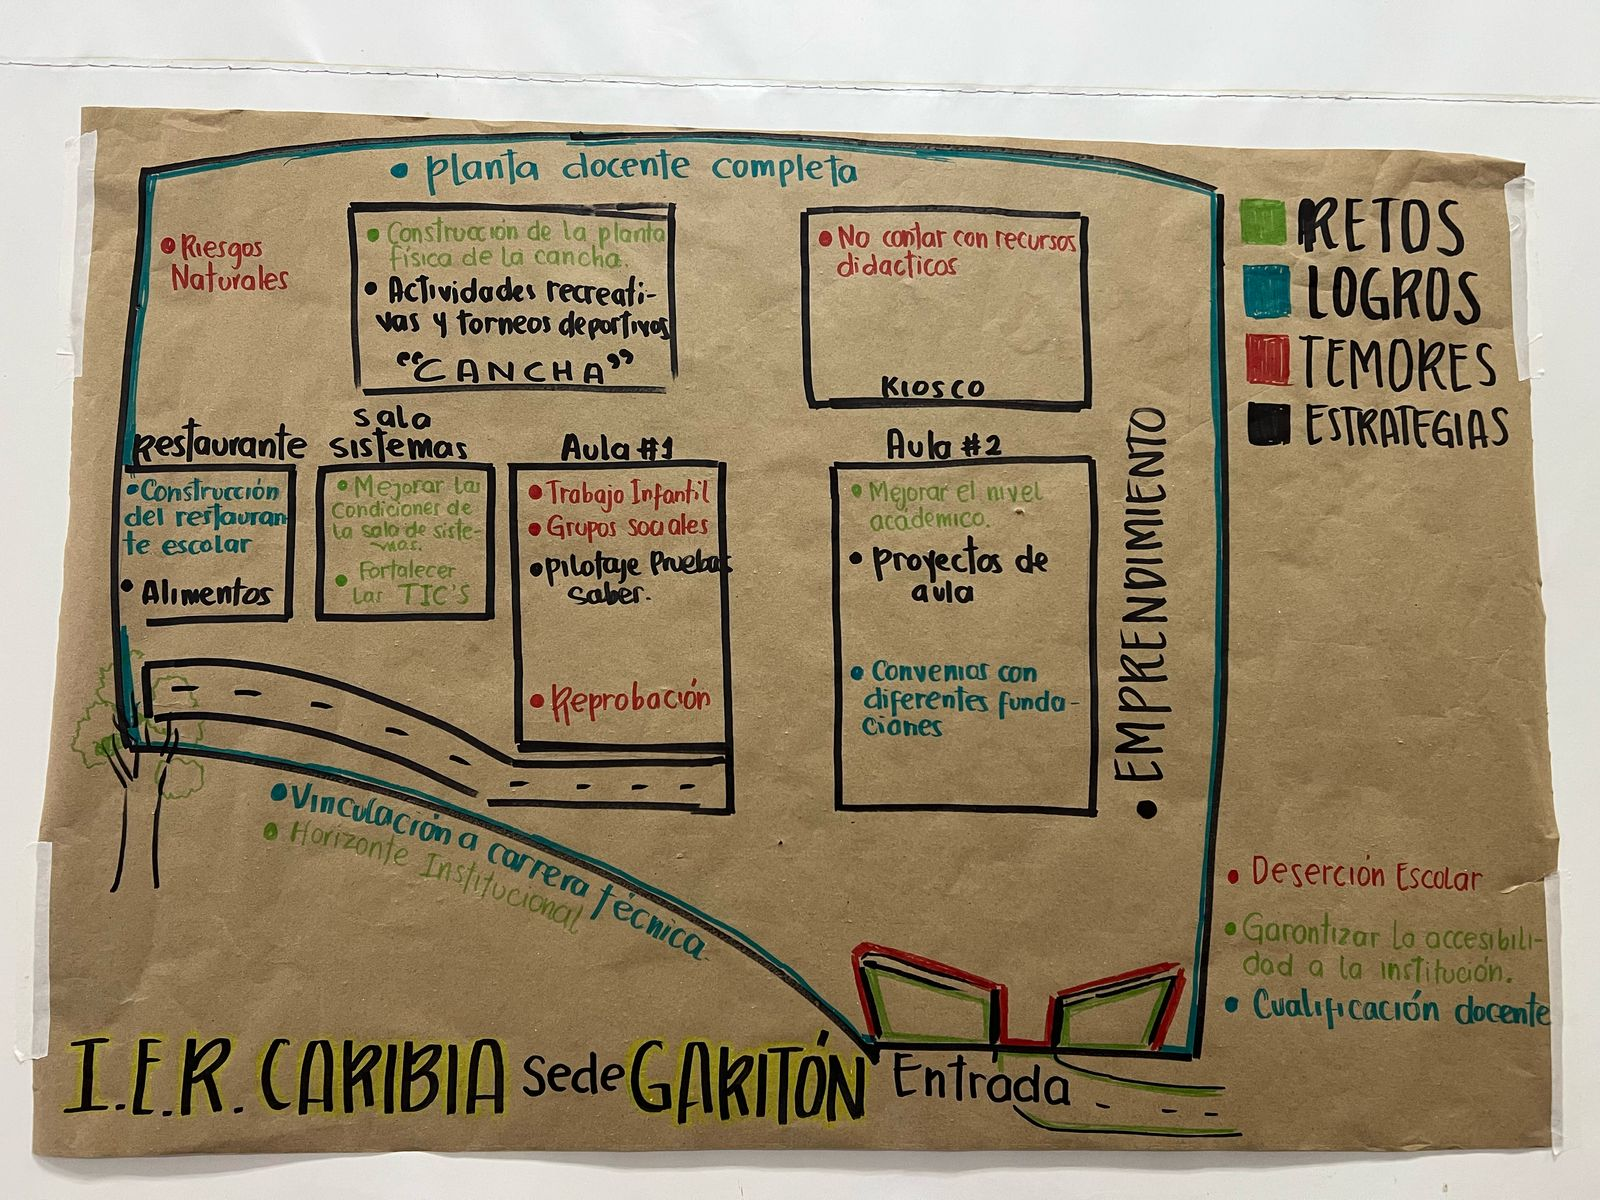 • planta docente completa
• Riesgos
Naturales
• Construcción de la planta
física de la cancha.
• Actividades recreati-
vas y torneos deportivos
"CANCHA"
• No contar con recursos
didacticos
KIOSCO
RETOS
LOGROS
TEMORES
ESTRATEGIAS
Restaurante
• Construcción
del restauran
te escolar
• Alimentos
Sala
sistemas
• Mejorar las
Condiciones de
la sala de siste-
mas.
• Fortalecer
las TIC'S
Aula #1
• Trabajo Infantil
• Grupos sociales
• Pilotaje Pruebas
saber.
• Reprobación
Aula #2
• Mejorar el nivel
académico.
• proyectos de
aula
• Convenios con
diferentes funda-
ciones
• EMPRENDIMIENTO
• Vinculación a carrera técnica
• Horizonte Institucional
• Deserción Escolar
• Garantizar la accesibili-
dad a la institución.
• Cualificación docente
I.E.R. CARIBIA Sede GARITÓN
Entrada